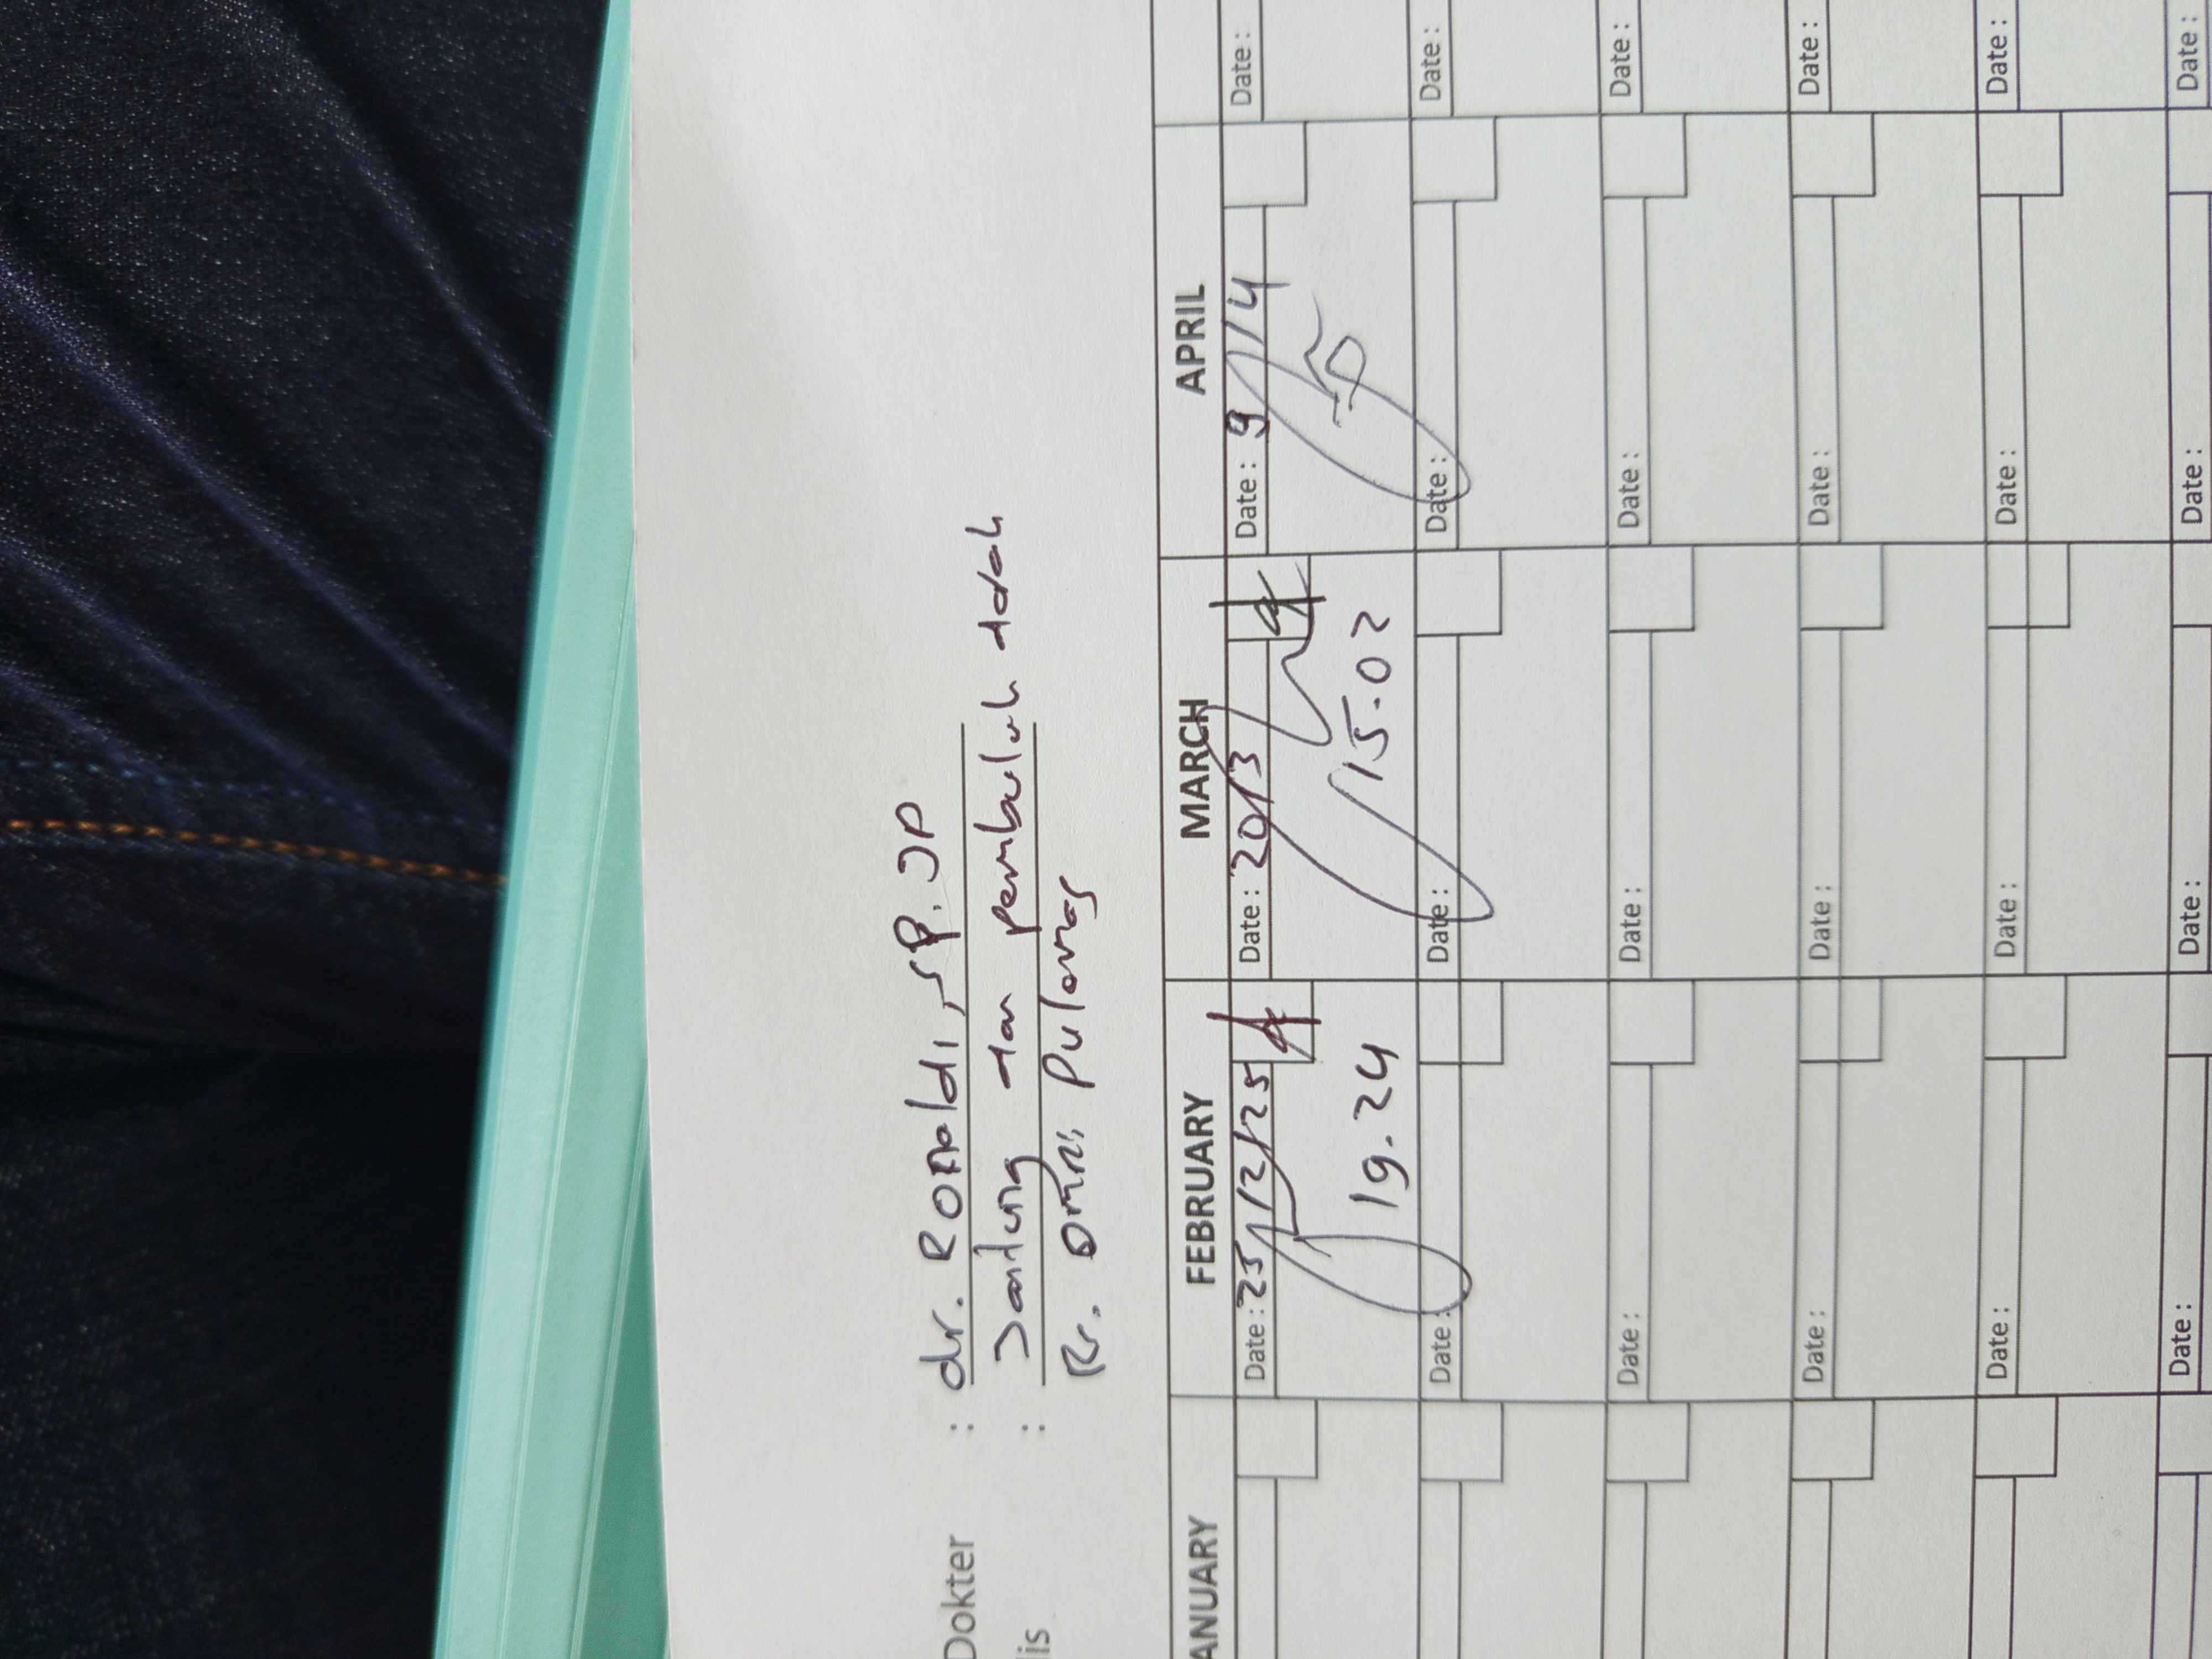 Dokter : dr. Ronaldi, SP. JP
lis : Jantung dan pembuluh darah
Rs. Omni Pulomas
ANUARY FEBRUARY MARCH APRIL
Date : 25/2/25 Date : 20/3 Date : 9/4 Date :
19.24 15.02
Date : Date : Date : Date :
Date : Date : Date : Date :
Date : Date : Date : Date :
Date : Date : Date : Date :
Date : Date : Date : Date :